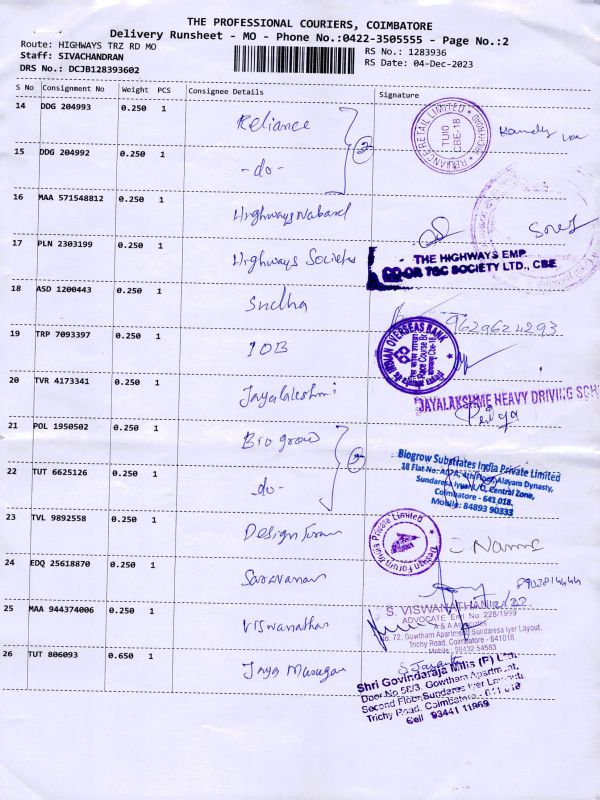 THE PROFESSIONAL COURIERS, COIMBATORE
Delivery Runsheet - MO - Phone No.:0422-3505555 - Page No.:2
Route: HIGHWAYS TRZ RD MO
RS No.: 1283936
Staff: SIVACHANDRAN
RS Date: 04-Dec-2023
DRS No.: DCJB128393602
S No Consignment No Weight PCS Consignee Details Signature
14 DDG 204993 0.250 1 Reliance
RELIANCE RETAIL LIMITED
TUIO
CBE-18
2
15 DDG 204992 0.250 1 -do-
16 MAA 571548812 0.250 1 Highways Nabard
17 PLN 2303199 0.250 1 Highways Societes
THE HIGHWAYS EMP
CO-OP T&C SOCIETY LTD., CBE
18 ASD 1200443 0.250 1 Sudha
9629624293
19 TRP 7093397 0.250 1 IOB
INDIAN OVERSEAS BANK
Race Course Br.
20 TVR 4173341 0.250 1 Jayalakshmi
JAYALAKSHME HEAVY DRIVING SCH
Priya
21 POL 1950502 0.250 1 Biogrow
2
Biogrow Substrates India Private Limited
18 Flat No: 4th Floor, Alayam Dynasty,
Sundaresa Iyer L/O, Central Zone,
Coimbatore - 641 018.
Mobile: 84893 90333
22 TUT 6625126 0.250 1 -do-
23 TVL 9892558 0.250 1 Design Forum
Design Forum India Private Limited
24 EDQ 25618870 0.250 1 Saravanan
25 MAA 944374006 0.250 1 Viswanathan
S. VISWANATHAN
ADVOCATE Enrl No. 228/1999
A & A Associates
No. 72, Gowtham Apartment, Sundaresa Iyer Layout,
Trichy Road, Coimbatore - 641018
Mobile : 98432 54583
26 TUT 806093 0.650 1 Jaya Murugan
Shri Govindaraja Mills (P) Ltd.,
Door No 58/3, Gowtham Apartment,
Second Floor, Sundaresa Iyer Layout,
Trichy Road, Coimbatore - 641 018
Cell 93441 11969